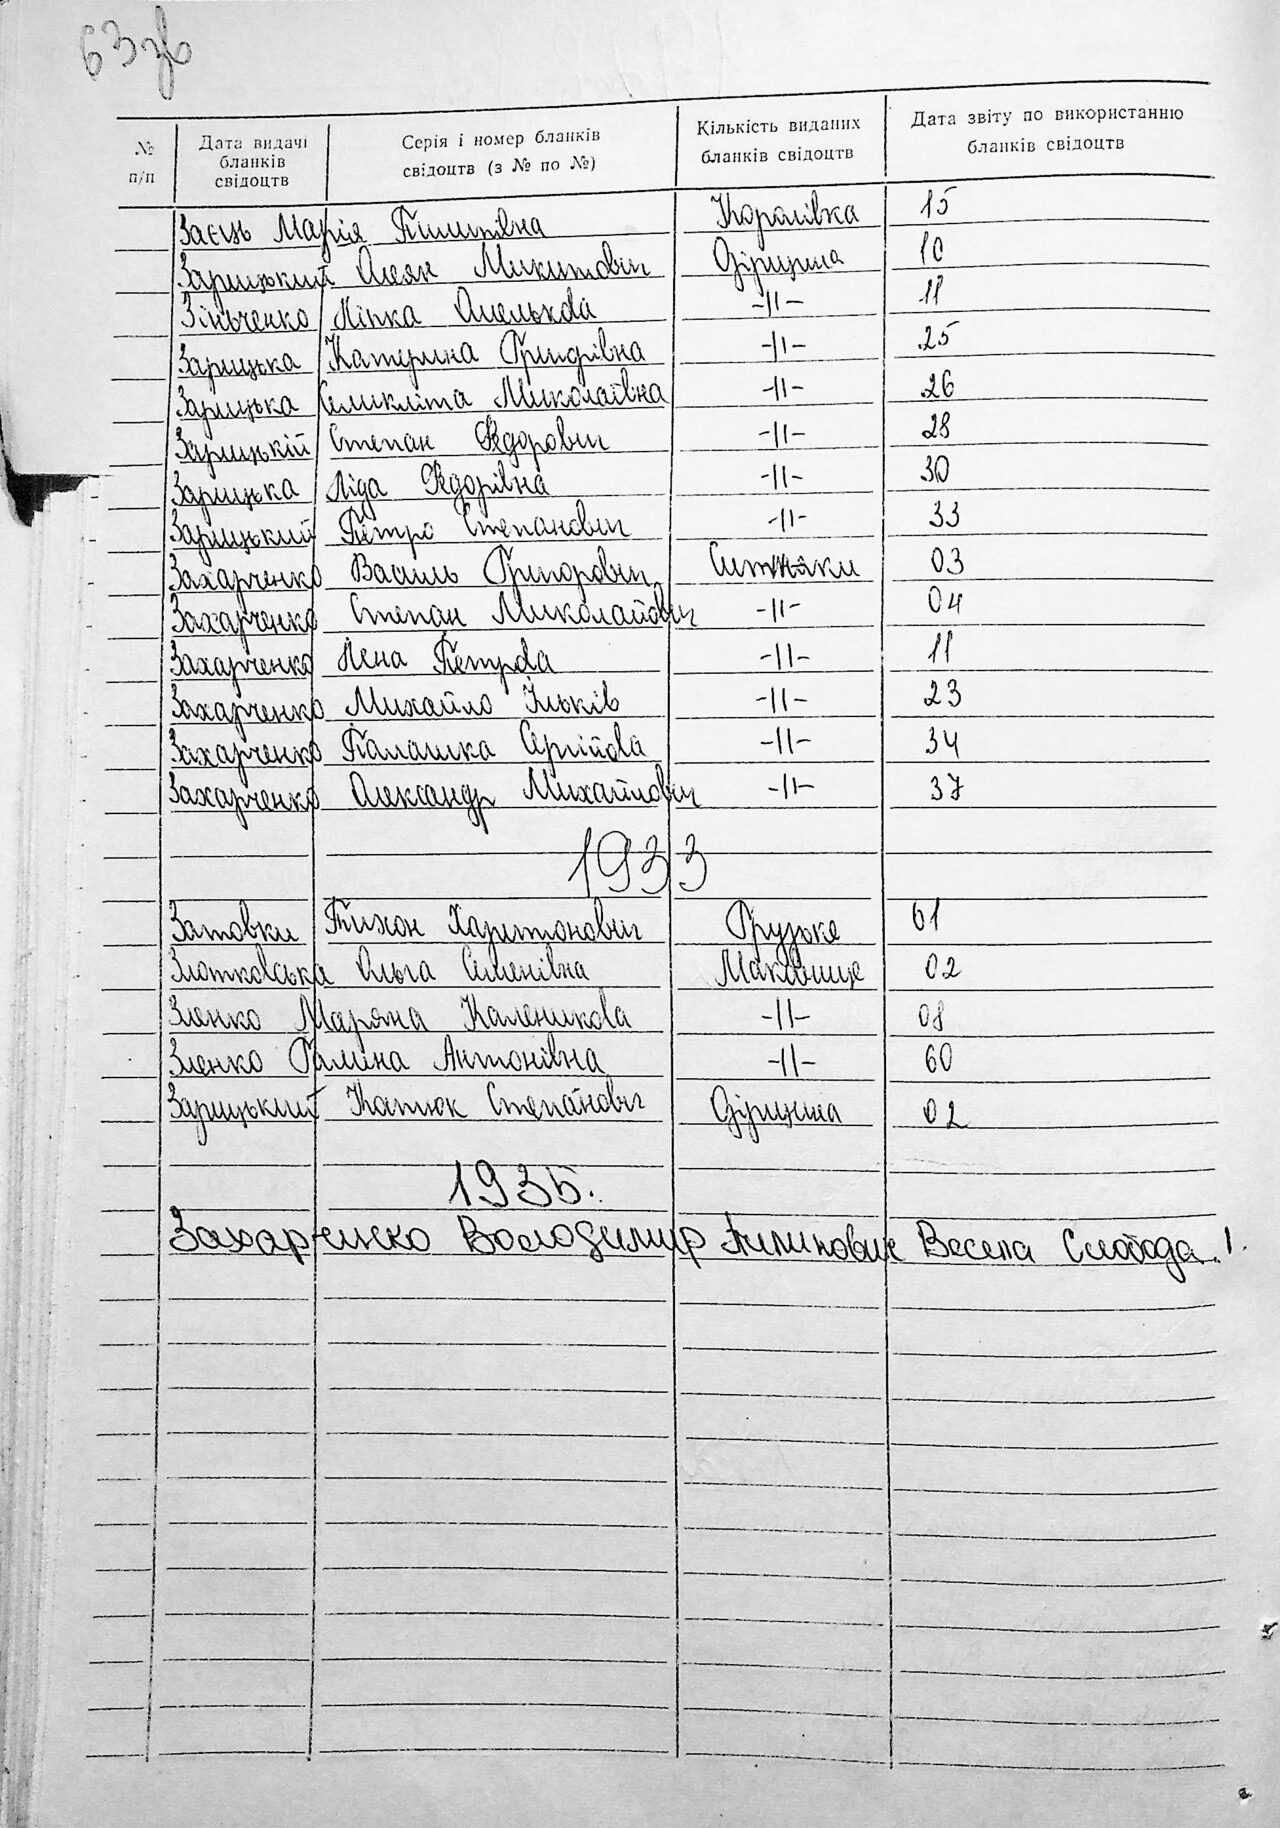 63зв
№ п/п | Дата видачі бланків свідоцтв | Серія і номер бланків свідоцтв (з № по №) | Кількість виданих бланків свідоцтв | Дата звіту по використанню бланків свідоцтв
Заєць Марія Пилипівна Королівка 15
Зарицький Олеяк Микитович Діриціна 10
Зінченко Лінка Омелькова -11- 11
Зарицька Катерина Григрівна -11- 25
Зарицька Микола­ївна -11- 26
Зарицькій Степан Федорович -11- 28
Зарицька Ліда Федорівна -11- 30
Зарицький Петро Степанович -11- 33
Захарченко Василь Григорович Ситняки 03
Захарченко Степан Миколайович -11- 04
Захарченко Лена Петрова -11- 11
Захарченко Михайло Ільків -11- 23
Захарченко Палашка Сергійова -11- 34
Захарченко Олександр Михайлович -11- 37
1933
Затовки Тихон Харитонович Грузьке 01
Злотковська Ольга Семенівна Маковище 02
Зленко Маряна Каленикова -11- 08
Зленко Галина Антонівна -11- 60
Зарицький Костюк Степанович Діриціна 02
1935.
Захарченко Володимир Пилипович Весела Слобода. 1.